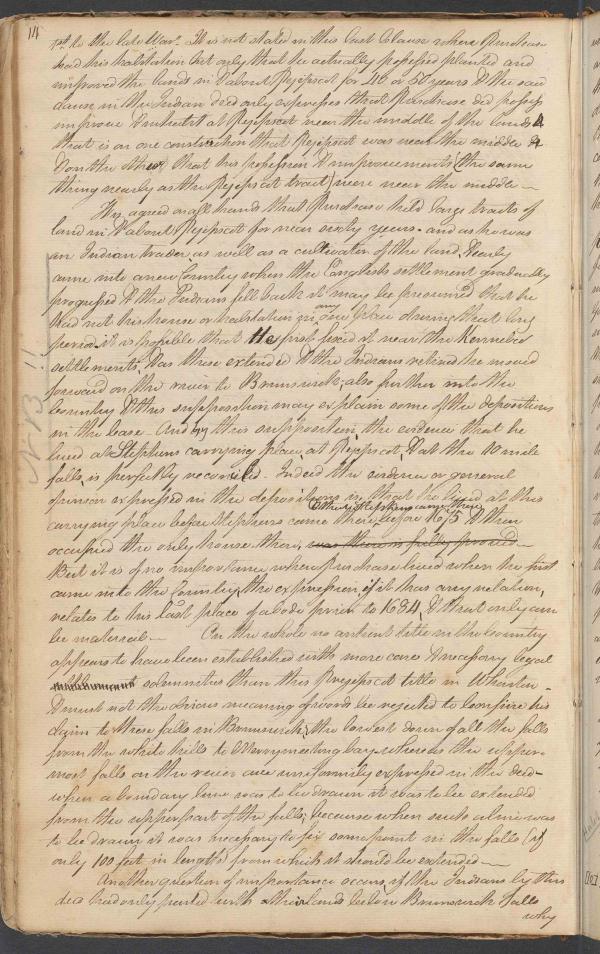 14
to the late War. It is not stated in this last clause where Purchase
had his habitation but only that he actually possessed planted and
improved the lands in & about Pejepscot for 40 or 50 years & the said
clause in the Indian deed only expresses that Purchase did possess
improve & inherit at Pejepscot near the middle of the lands &
that is on one construction that Pejepscot was near the middle &
on the other that his possession & improvements (the same
thing nearly as the Pejepscot tract) were near the middle —
Tis agreed on all hands that Purchase held large tracts of
land in & about Pejepscot for near sixty years. and as he was
an Indian trader as well as a cultivator of the land & early
came into a new Country when the English settlement gradually
progressed & the Indians fell back it may be presumed that he
had not his house or habitation in any one place during that long
period. it is possible that He first fixed it near the Kennebec
settlements, & as these extended & the Indians retired he moved
forward on the river to Brunswick, also further into the
Country & this supposition may explain some of the depositions
in the case. And by this supposition the evidence that he
lived at Stephens carrying place, at Pejepscot, & at the 10 mile
falls, is perfectly reconciled. Indeed the evidence or general
opinion expressed in the depositions is, that he lived at this
carrying place before Stephens came there, before 1675 & then
& that Stephens came there
occupied the only house there, was there is fully proved
But it is of no importance where purchase lived when he first
came into the Country, the expression, if it has any relation,
relates to his last place of abode prior to 1684, & that only can
be material. — On the whole no antient title in the Country
appears to have been established with more care & necessary legal
solemnities than this Pejepscot title in Wharton.
& must not the obvious meaning of words be rejected to confine his
claim to these falls in Brunswick, the lowest down of all the falls
from the white hills to Merrymeeting bay whereas the upper-
most falls on the river are uniformly expressed in the deed —
when a boundary line was to be drawn it was to be extended
from the upper part of the falls, because when such a line was
to be drawn it was necessary to fix some point in the falls (if
only 100 feet in length) from which it should be extended —
Another question of importance occurs, if the Indians by this
deed had only parted with their lands below Brunswick Falls
why
N B !!